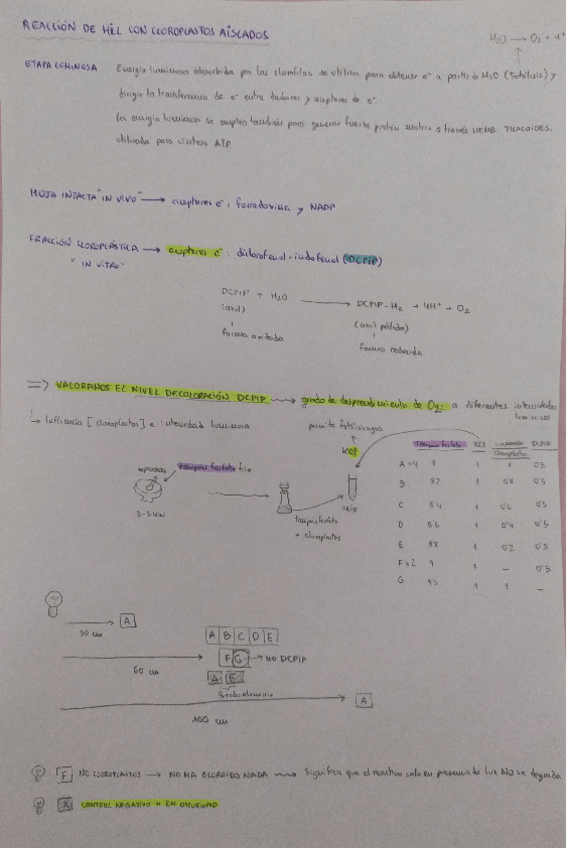 REACCIÓN DE HILL CON CLOROPLASTOS AISLADOS
H₂O → O₂ + H⁺
ETAPA LUMINOSA
Energía luminosa absorbida por las clorofilas se utiliza para obtener e⁻ a partir de H₂O (fotólisis) y
dirigir la transferencia de e⁻ entre dadores y aceptores de e⁻
La energía luminosa se emplea también para generar fuerza protón motriz a través MEMB. TILACOIDES,
utilizada para síntesis ATP.
HOJA INTACTA "IN VIVO" → aceptores e⁻: ferredoxina y NADP
FRACCIÓN CLOROPLÁSTICA → aceptores e⁻: diclorofenol-indofenol (DCPIP)
"IN VITRO"
DCPIP + H₂O → DCPIP-H₂ + 4H⁺ + O₂
(azul) (azul pálido)
forma oxidada forma reducida
=> VALORAMOS EL NIVEL DECOLORACIÓN DCPIP → grado de desprendimiento de O₂ a diferentes intensidades
luminosas
↳ Influencia [cloroplastos] e intensidad luminosa
permite fotólisis agua
KCl
espinacas tampón fosfato frío
tampón fosfato
+ cloroplastos
Tampón fosfato KCl Suspensión cloroplastos DCPIP
A x4 8 1 1 0'5
B 8'2 1 0'8 0'5
C 8'4 1 0'6 0'5
D 8'6 1 0'4 0'5
E 8'8 1 0'2 0'5
F x2 9 1 — 0'5
G 9'5 1 1 —
A
30 cm
A B C D E
F G → NO DCPIP
60 cm
A E
Fondo aluminio
A
100 cm
F NO CLOROPLASTOS → NO HA OCURRIDO NADA → Significa que el reactivo solo en presencia de luz NO se degrada
A CONTROL NEGATIVO → EN OSCURIDAD